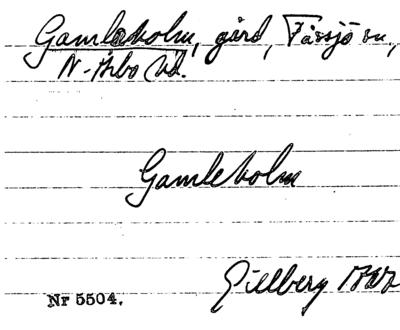 Gamleholm, gård, Färsjö sn,
N-Årbo hd.
Gamleholm
Gillberg
Nr 5504.